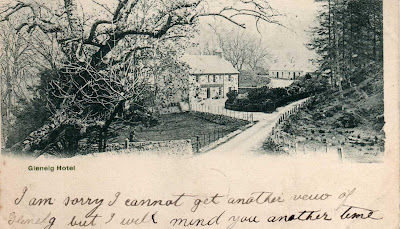 Glenelg Hotel
I am sorry I cannot get another view of
Glenelg but I will mind you another time